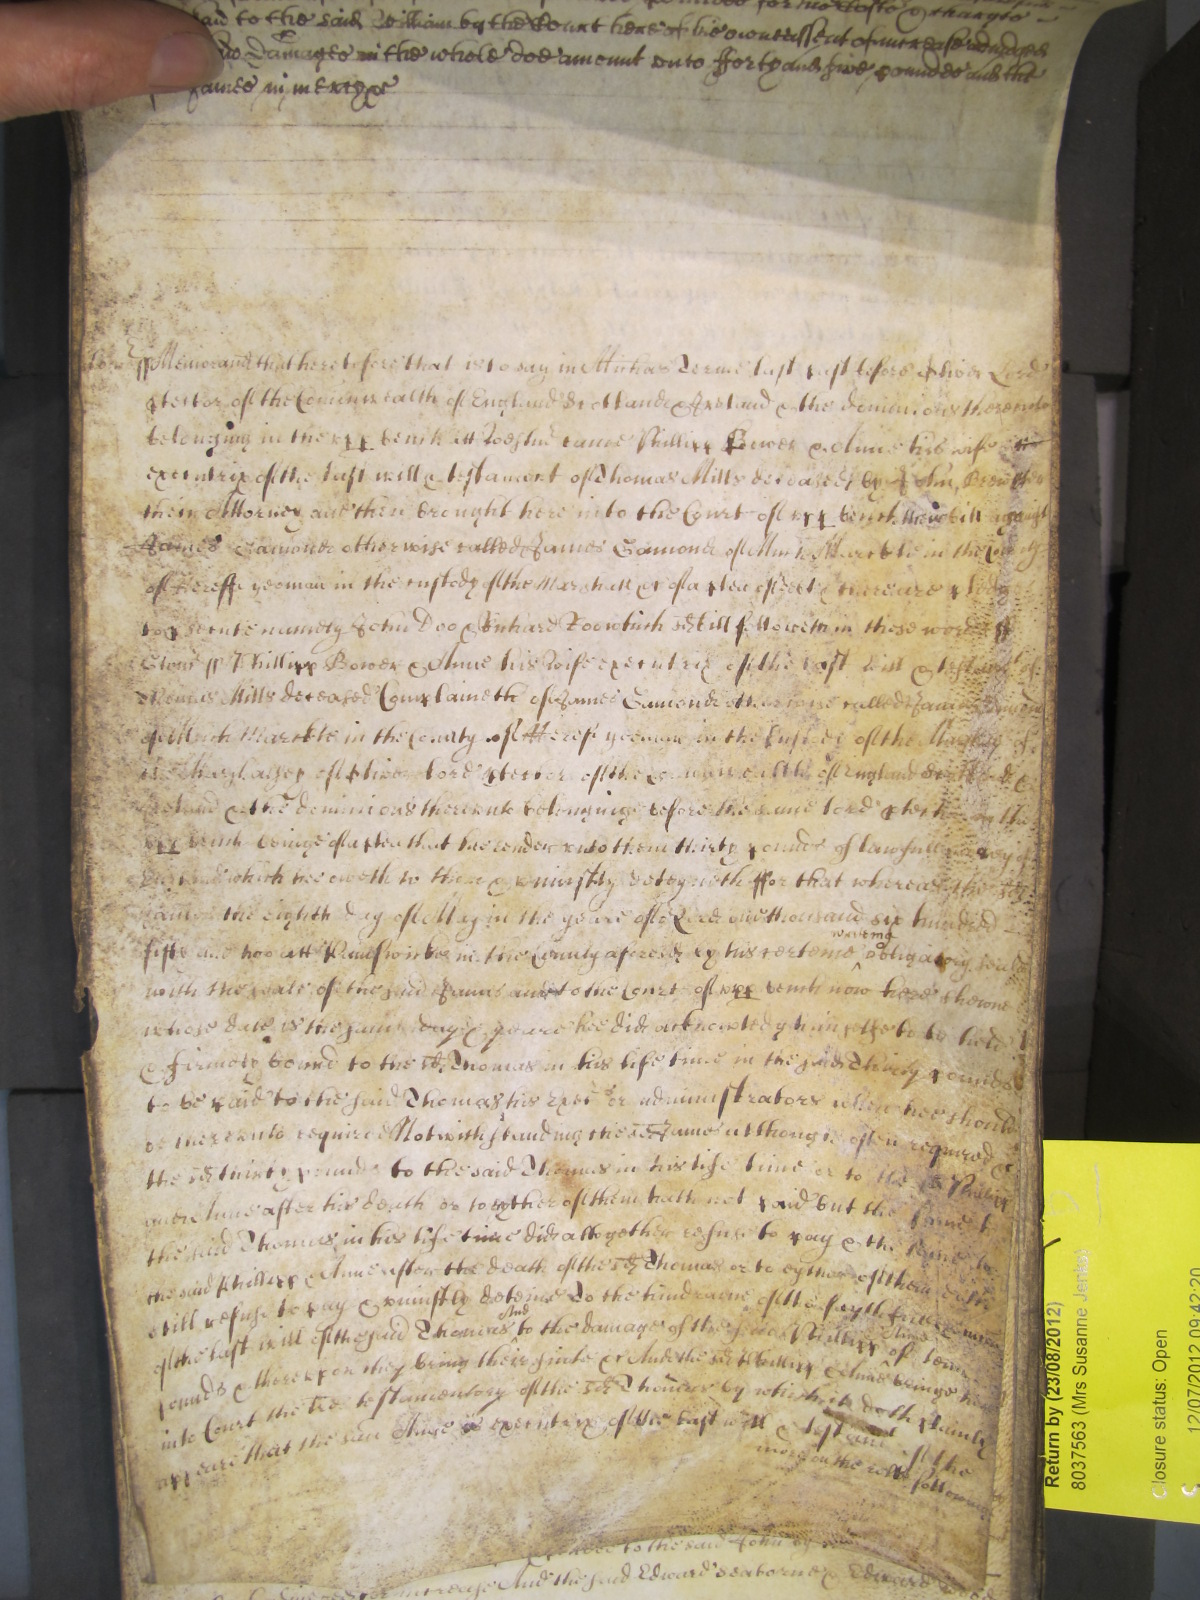 paid to the said William by the Court here of his owne assent of increase adiudged
damages in the whole doe amount unto fforty and five pounds and the
James in mercy &c
Memorand that heretofore that is to say in Terme last past before Oliver Lord
Ptector of the Comonwealth of England Scotland & Ireland & the dominions thereunto
belonging in the upp bench att Westmr came Phillipp Bower & Anne his wife
executrix of the last will & testament of Thomas Mills deceased by John
their Attorney and then brought here into the Court of upp bench their bill against
James Gamond otherwise called James Gamond of Much Marckle in the County
of Hereff yeoman in the custody of the Marshall &c of a plea of debt & there are pledges
to psecute namely John Doo & Richard Roo which sd bill followeth in these words ss
ss Phillipp Bower & Anne his wife executrix of the last will & testamt of
Thomas Mills deceased Complaineth of James Gamond otherwise called James Gamond
of Much Marckle in the County of Hereff yeoman in the Custody of the Marshall of
the Marshalsey of Oliver Lord Ptector of the Comonwealth of England Scotland &
Ireland & the dominions thereunto belonging before the same lord Ptector in the
upp bench being of a plea that hee render unto them thirty pounds of lawfull money of
England which hee oweth to them & uniustly deteyneth ffor that whereas the sd
James the eighth day of May in the yeare of or Lord one thousand six hundred
fifty and att in the County aforesd by his certeine writing obligatory sealed
with the seale of the said James and to the Court of upp bench now here shewne
whose date is the same day & yeare hee did acknowledg himselfe to be held
& firmely bound to the sd Thomas in his life time in the said thirty pounds
to be paid to the said Thomas his execrs or administrators when hee should
be thereunto required Notwithstanding the sd James although often required &c
the sd thirty pounds to the said Thomas in his life time or to the sd Phillipp
and Anne after his death or to eyther of them hath not paid but the same to
the said Thomas in his life time did altogether refuse to pay & the same to
the said Phillipp & Anne after the death of the sd Thomas or to eyther of them doth
still refuse to pay & uniustly deteine To the hindrance of the
of the last will of the said Thomas And to the damage of the said Phillipp & Anne of tenn
pounds & thereupon they bring their suite &c And the sd Phillipp & Anne bringe here
into Court the lres testamentory of the sd Thomas by which it doth plainly
appeare that the said Anne is executrix of the last will & testamt of the
more on the rolle following
to the said John by
increase And the said Edward Seaborne & Edward
Return by (23/08/2012)
8037563 (Mrs Susanne Jenks)
Closure status: Open
12/07/2012 09:42:20